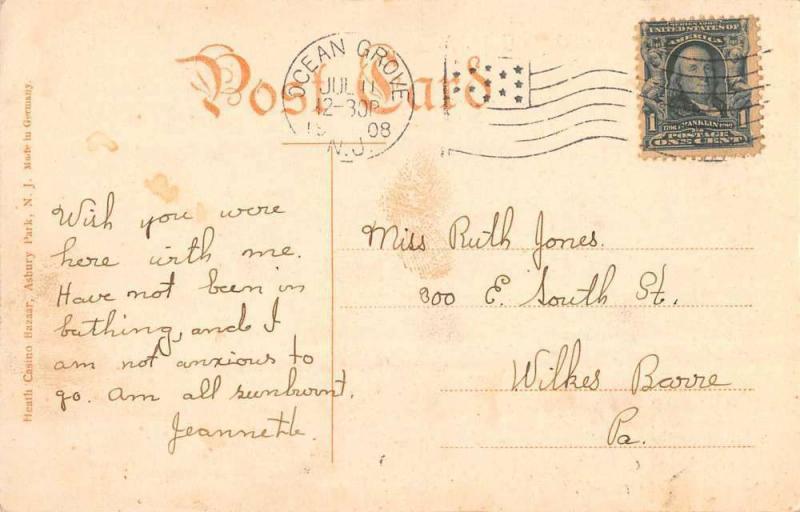 Post Card
OCEAN GROVE
JUL 11
12-30P
1908
N.J.
SERIES 1902
UNITED STATES OF
AMERICA
1 FRANKLIN 1
POSTAGE
ONE CENT
Heath Casino Bazaar, Asbury Park, N. J. Made in Germany.
Wish you were
here with me.
Have not been in
bathing, and I
am not anxious to
go. Am all sunburnt.
Jeannette.
Miss Ruth Jones.
300 E. South St.
Wilkes Barre
Pa.